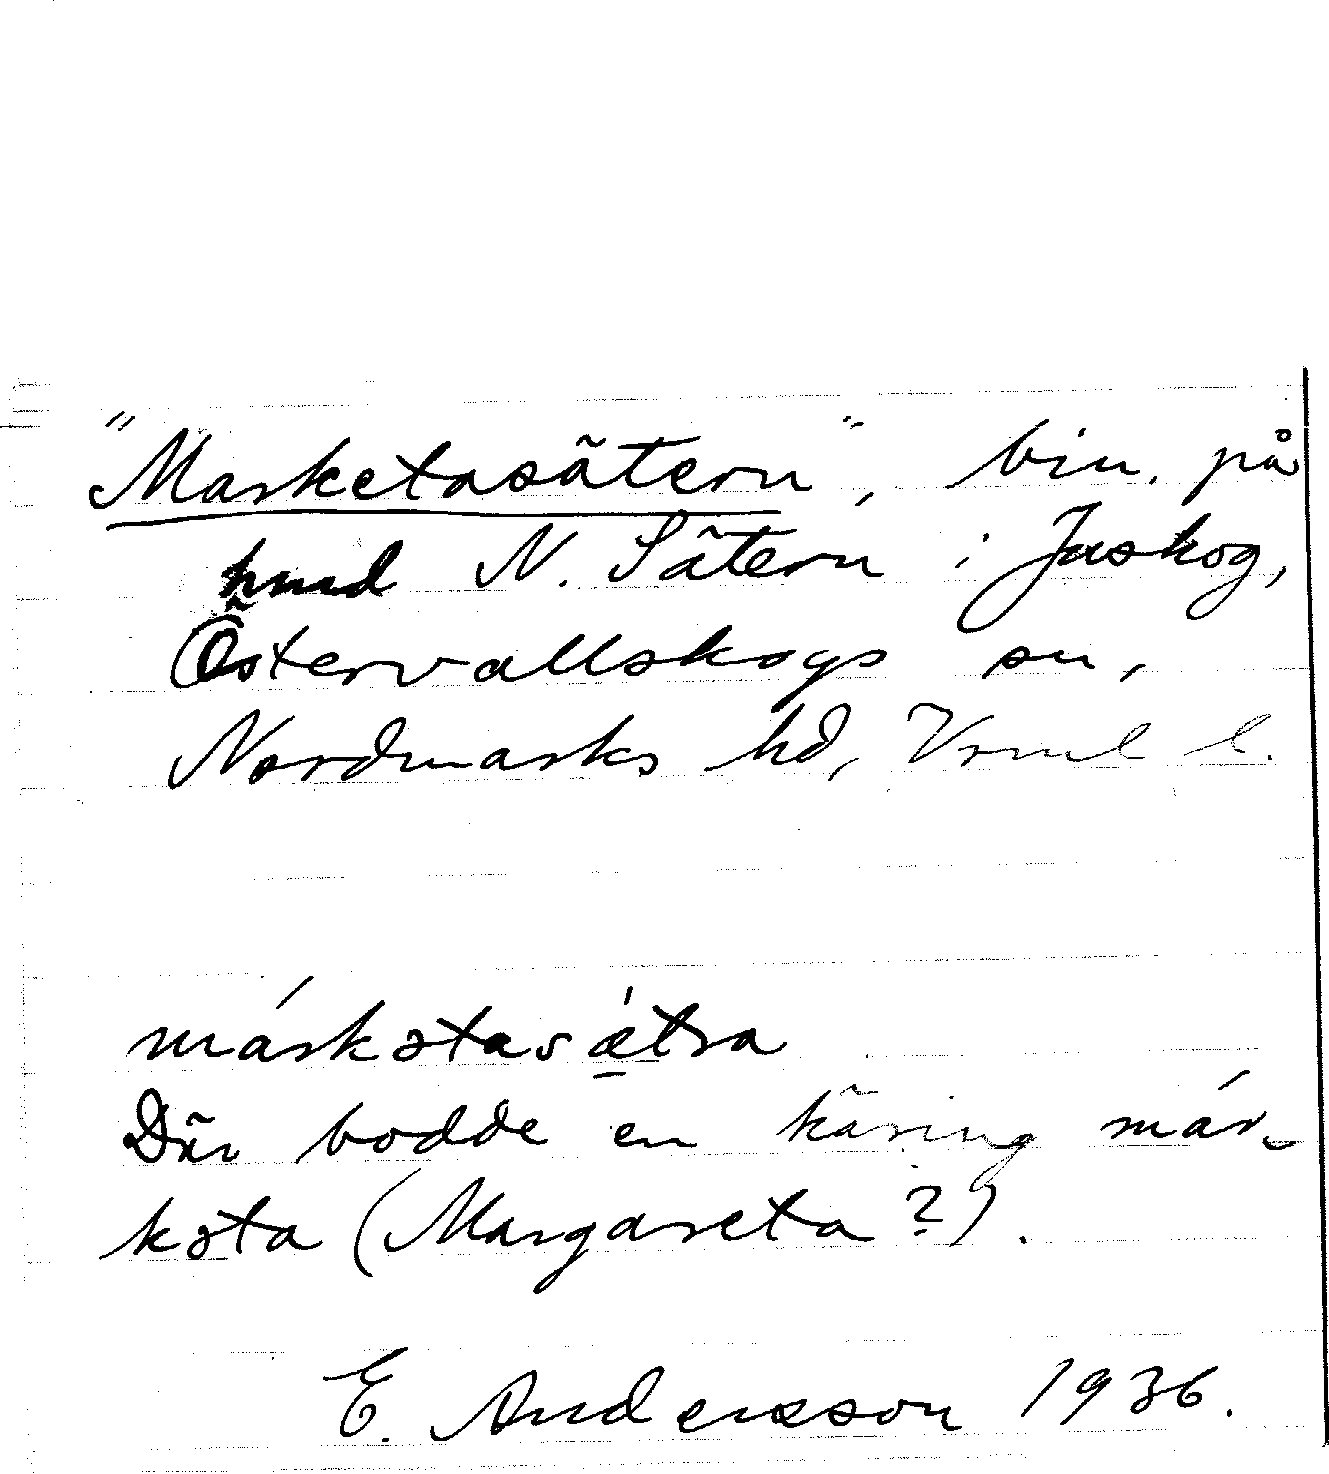 "Marketasätern", bin. på
hmd N. Sätern i Jaskog,
Östervallskogs sn,
Nordmarks hd, Vrml l.
márkətasǽtra
Där bodde en käring már-
kəta (Margareta?).
E. Andersson 1936.